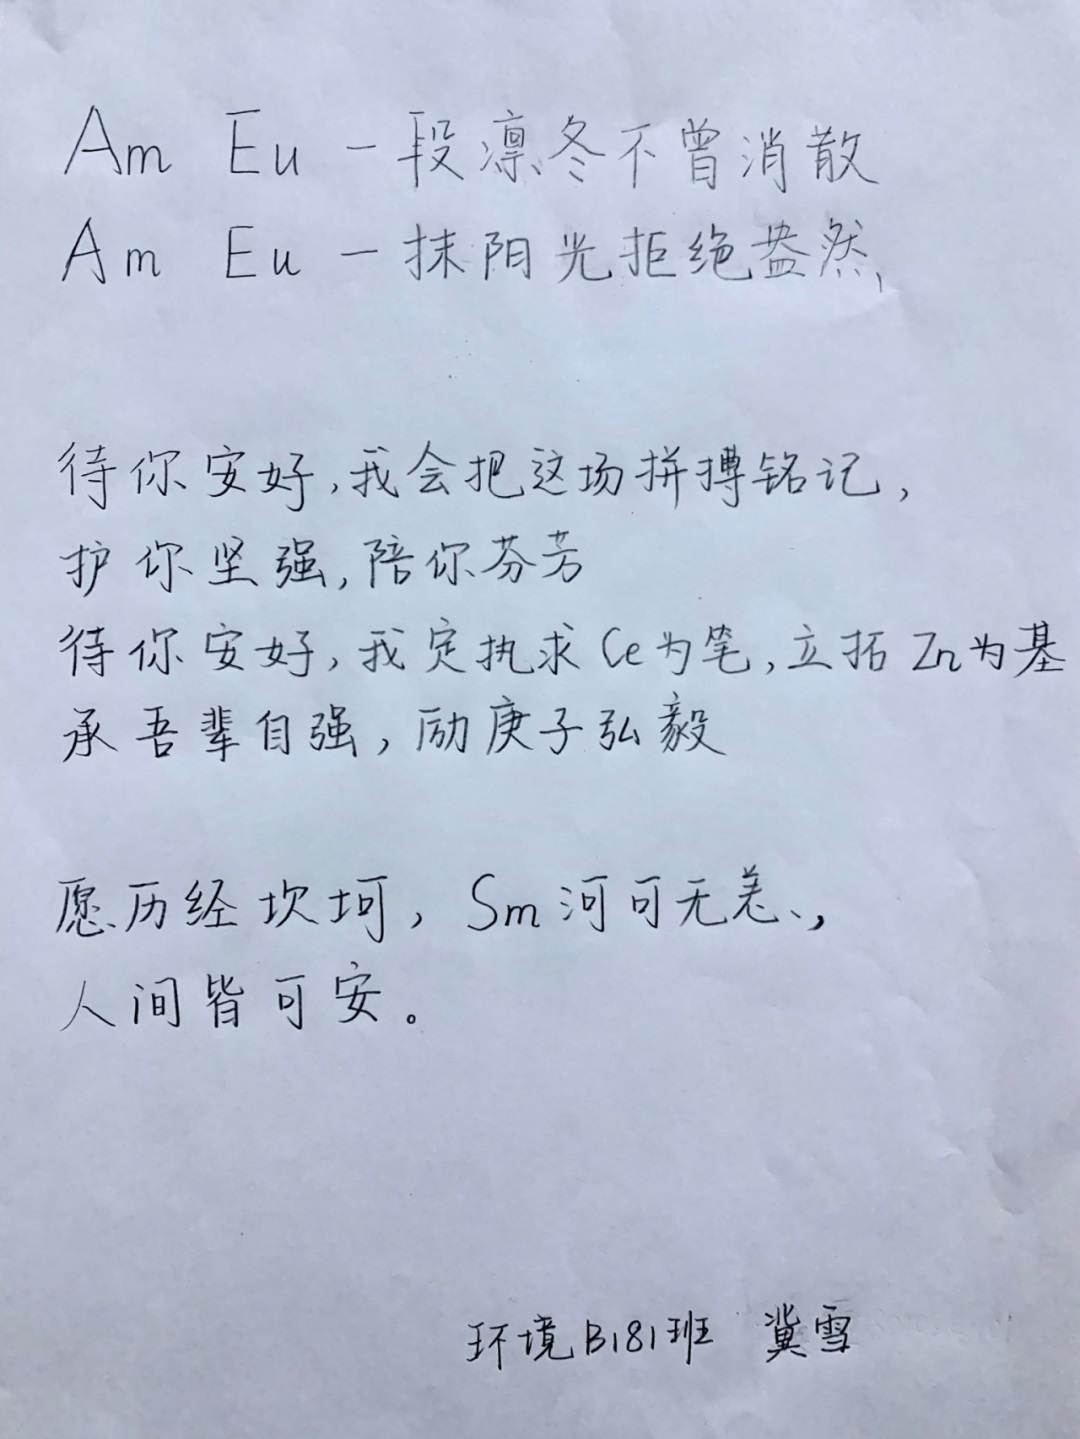 Am Eu 一段凛冬不曾消散
Am Eu 一抹阳光拒绝盎然,
待你安好,我会把这场拼搏铭记,
护你坚强,陪你芬芳
待你安好,我定执求Ce为笔,立拓Zn为基
承吾辈自强,励庚子弘毅
愿历经坎坷,Sm河可无恙,
人间皆可安。
环境B181班 冀雪